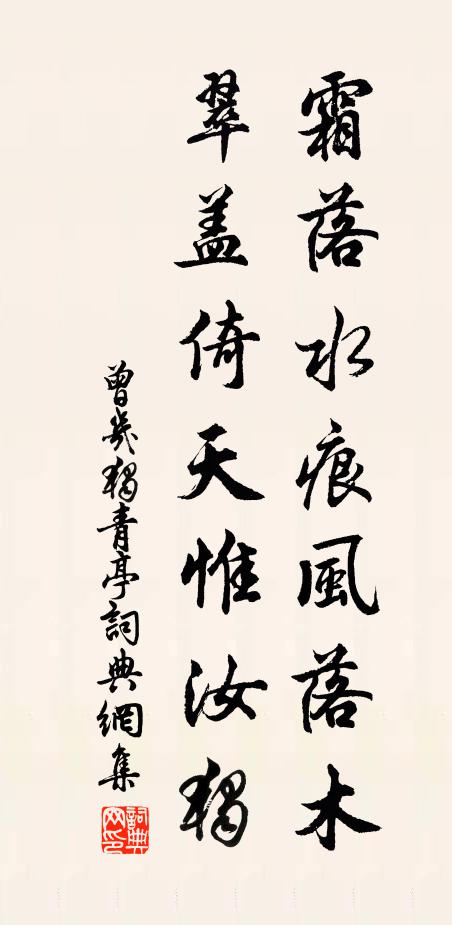 霜落水痕風落木
翠盖倚天惟汝獨
曾幾獨青亭詞典網集
詞典网印